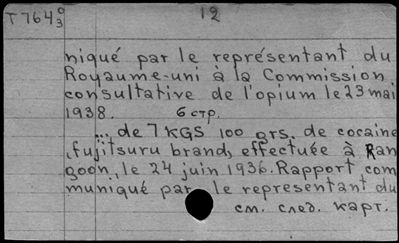 T 764 0/3
12
niqué par le représentant du
Royaume-uni à la Commission
consultative de l'opium le 23 mai
1938. 6 стр.
... de 7 KGS 100 grs. de cocaine
"fujitsuru brand, effectuée à Ran
goon, le 24 juin 1936. Rapport com
muniqué par le representant du
см. след. карт.